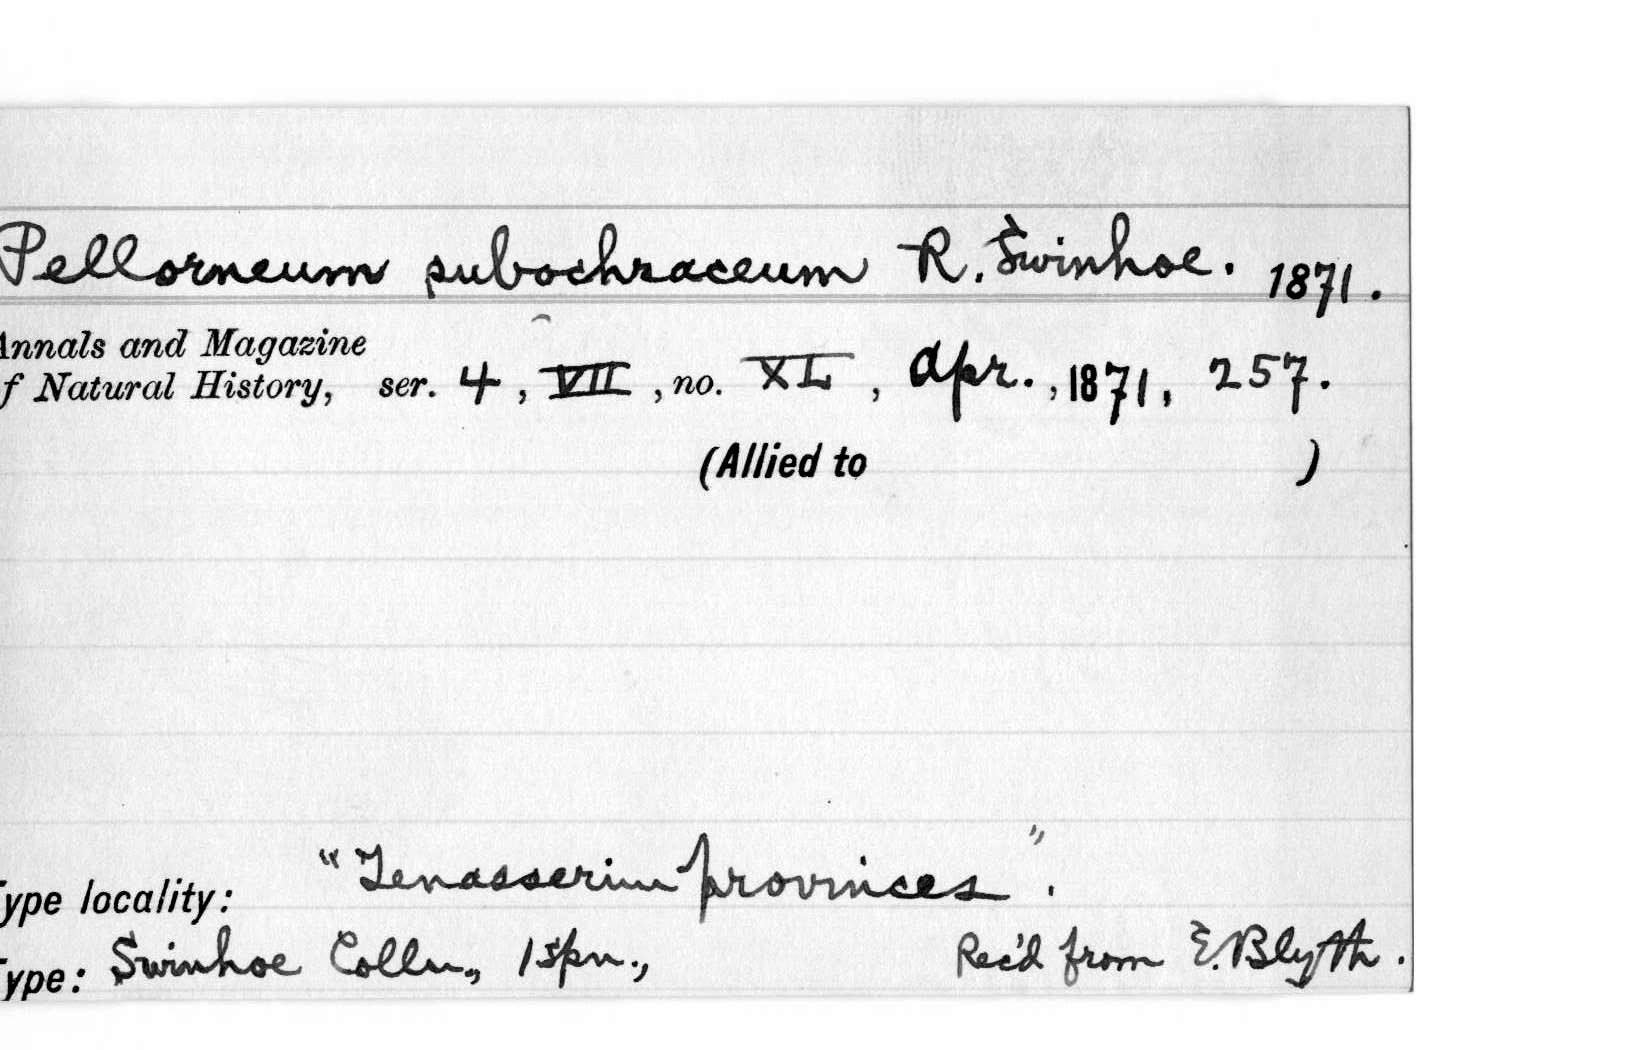 Pellorneum subochraceum R. Swinhoe. 1871.
Annals and Magazine
f Natural History, ser. 4, VII, no. XL, Apr., 1871, 257.
(Allied to )
"Tenasserim provinces".
Type locality:
Type: Swinhoe Colln., 1 spn., Rec'd from E. Blyth.